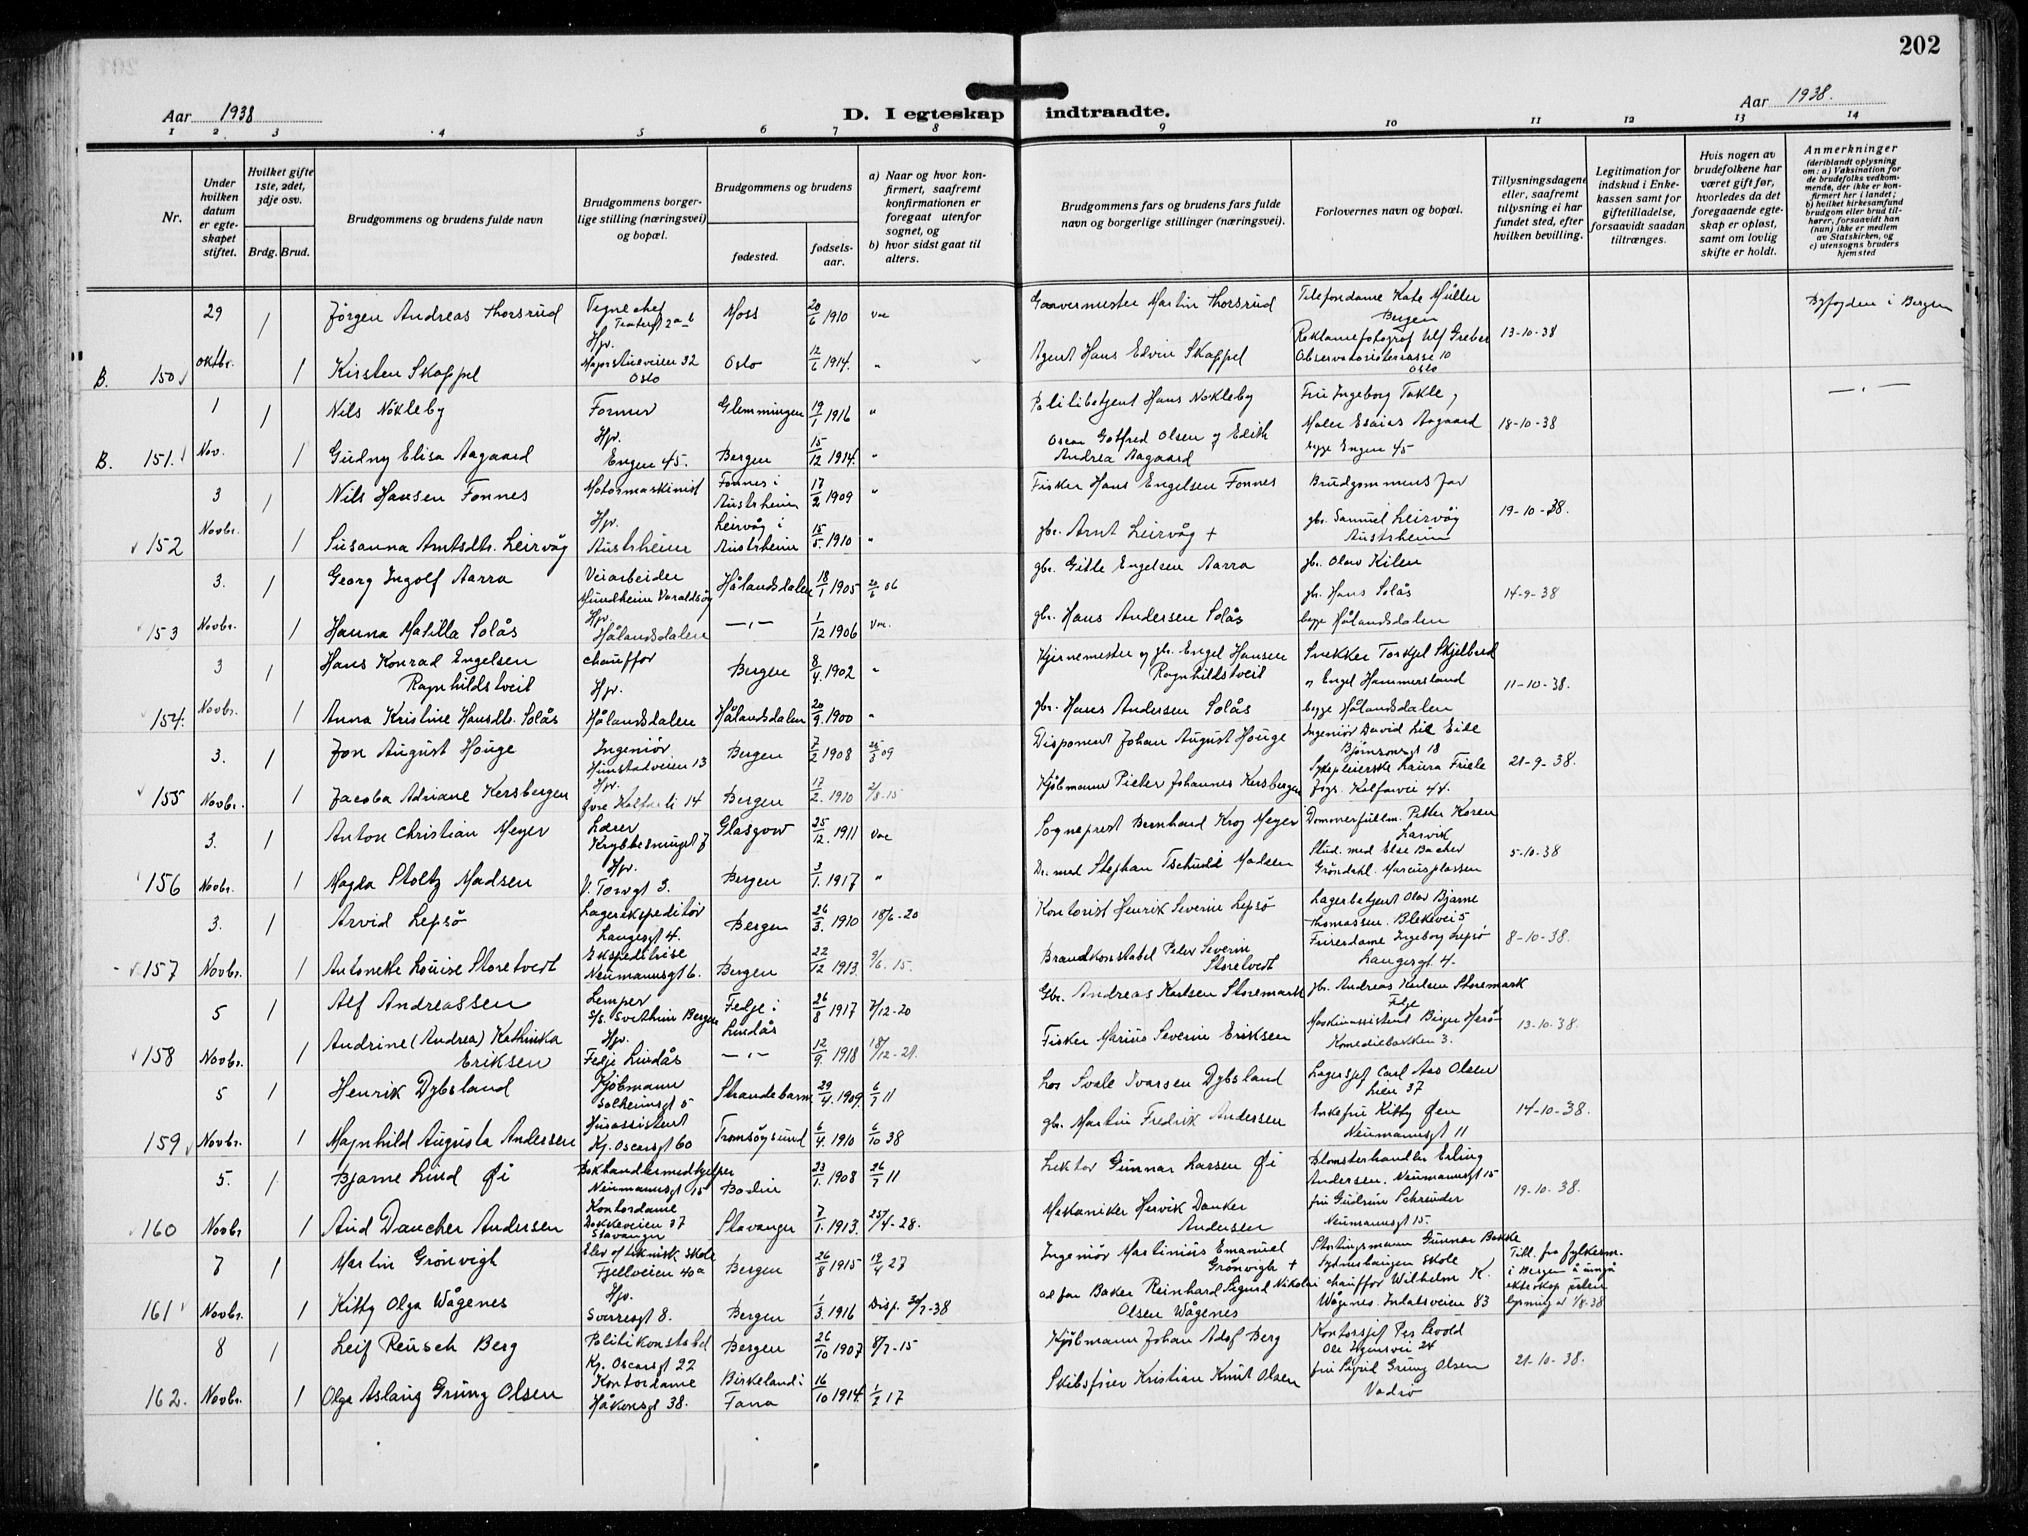 202
Aar 1938
D. I egteskap indtraadte.
Aar 1938.
1 2 3 4 5 6 7 8 9 10 11 12 13 14
Nr.
Under hvilken datum er egteskapet stiftet.
Hvilket gifte 1ste, 2det, 3dje osv.
Brdg. Brud.
Brudgommens og brudens fulde navn
Brudgommens borgerlige stilling (næringsvei) og bopæl.
Brudgommens og brudens
fødested.
fødselsaar.
a) Naar og hvor konfirmert, saafremt konfirmationen er foregaat utenfor sognet, og
b) hvor sidst gaat til alters.
Brudgommens fars og brudens fars fulde navn og borgerlige stillinger (næringsvei).
Forlovernes navn og bopæl.
Tillysningsdagene eller, saafremt tillysning ei har fundet sted, efter hvilken bevilling.
Legitimation for indskud i Enkekassen samt for giftetilladelse, forsaavidt saadan tiltrænges.
Hvis nogen av brudefolkene har været gift før, hvorledes da det foregaaende egteskap er opløst, samt om lovlig skifte er holdt.
Anmerkninger
(deriblandt oplysning om: a) Vaksination for de brudefolks vedkommende, der ikke er konfirmert her i landet; b) hvilket kirkesamfund brudgom eller brud tilhører, forsaavidt han (hun) ikke er medlem av Statskirken, og c) utensogns bruders hjemsted
29 1 Jørgen Andreas Thorsrud Tegner Moss 20/6 1910 vac Martin Thorsrud Telefondame Kate Müller Bergen 13-10-38 Byfogden i Bergen
B. 150 oktbr. 1 Kirsten Skappel Hjv. Majorstueveien 32 Oslo Oslo 12/6 1914. " Agent Hans Edvin Skappel Reklamefotograf Ulf Greber Observatorieterrasse 10 Oslo
1 1 Nils Nökleby Former Glemmingen 19/1 1916 " Hans Nökleby Fru Ingeborg Takle, 18-10-38 — " —
B. 151. Nov. 1 Gudny Elisa Aagaard Hjv. Engen 45. Bergen 15/12 1914. " Oscar Gotfred Olsen og Edith Andrea Aagaard Maler Esaias Aagaard begge Engen 45
3 1 Nils Hansen Fonnes Motormaskinist Fonnes i Austrheim 17/2 1909 " Fisker Hans Engelsen Fonnes Brudgommens far 19-10-38.
152 Novbr. 1 Susanna Arntsdtr. Leirvåg Hjv. Austrheim Leirvåg i Austrheim 15/5. 1910 " gbr. Arnt Leirvåg + gbr. Samuel Leirvåg Austrheim
3. 1 Georg Ingolf Aarra Veiarbeider Mundheim Varaldsøy Hålandsdalen 18/1 1905 gbr. Gitle Engelsen Aarra gbr. Olav Kilen 14-9-38
153 Novbr. 1 Hanna Matilla Solås Hjv. Hålandsdalen — " — 1/12 1906 vac. gbr. Hans Andersen Solås gbr. Hans Solås begge Hålandsdalen
3 1 Hans Konrad Engelsen Ragnhildstveit chauffør Bergen 8/4. 1902 " Kjernemester og gbr. Engel Hansen Ragnhildstveit Snekker Torkjel Skjelbred 11-10-38.
154. Novbr. 1 Anna Kristine Hansdtr. Solås Hjv. Hålandsdalen Hålandsdalen 20/9. 1900 " gbr. Hans Andersen Solås og Engel Hammersland begge Hålandsdalen
3. 1 Jon August Houge Ingeniør Hunstadveien 13 Bergen 7/2 1908 Disponent Johan August Houge Ingeniør David Lie Eide Bjørnsonsgt 18 21-9-38.
155 Novbr. 1 Jacoba Adriane Kersbergen Hjv. Øvre Kalfarli 14 Bergen 17/2. 1910 2/8-15 Kjøbmann Pieter Johannes Kersbergen Sykepleierske Laura Friele Kalfarvei 44.
3. 1 Anton Christian Meyer Lærer Krybbesmuget 7 Glasgow 25/12. 1911 vac Sogneprest Bernhard Krog Meyer Dommerfullm. Petter Koren Larvik 5-10-38
156 Novbr. 1 Magda Stoltz Madsen Hjv. V. Torvgt 3. Bergen 3/1. 1917 " Dr. med Stephan Tschudi Madsen Stud. med Else Bacher Grøndahl. Marcusplassen
3. 1 Arvid Lepsö Lagerekspeditör Langesgt 4. Bergen 26/3. 1910 18/6-20 Kontorist Henrik Severin Lepsø Lagerbetjent Olav Bjarne Thomassen. Blekevei 5 8-10-38.
157 Novbr. 1 Antonette Louise Storetvedt Ekspeditrise Neumannsgt 6. Bergen 22/12 1913. 9/6. 15. Brandkonstabel Peter Severin Storetvedt Friserdame Ingeborg Lepsø Langesgt 4.
5 1 Alf Andreassen Lemper Bergen Fedje i Lindås 26/8 1917 7/12-20 Gbr. Andreas Karlsen Storemark gbr. Andreas Karlsen Storemark Fedje 13-10-38.
158 Novbr. 1 Andrine (Andrea) Kathinka Eriksen Hjv. Fedje Lindås — " — 12/9. 1918 18/12-21. Fisker Marius Severin Eriksen Maskinassistent Birger Komediebakken 3.
5 1 Henrik Dybsland Kjøbmann Solheimsgt 5 Strandebarm 29/4. 1909. 6/7 11 Los Svale Ivarsen Dybsland Lagersjef Carl Aas Olsen Lien 37 14-10-38.
159 Novbr. 1 Magnhild Augusta Andersen Husassistent Kg. Oscarsgt 60 Tromsøysund 6/4. 1910 6/10 38 gbr. Martin Fredrik Andersen Enkefru Kitty Øen Neumannsgt 11
5. 1 Bjarne Lind Øi Bokhandlermedhjelper Neumannsgt 15 Bodin 23/1. 1908 26/7 11 Lektor Gunnar Larsen Øi Blomsterhandler Erling Andersen. Neumannsgt 15 19-10-38.
160 Novbr 1 Aud Dancher Andersen Kontordame Dokkeveien 37 Stavanger Stavanger 7/1. 1913. 25/4-28. Mekaniker Henrik Danker Andersen fru Gudrun Schreuder Neumannsgt 15.
7 1 Martin Grönvigh Elev af teknisk skole Fjellveien 40a Bergen 26/8 1915 19/4 27 Ingeniør Martinius Emanuel Grönvigh + Stortingsmann Gunnar Bakke Sydneshaugen skole Till. fra fylkesm. i Bergen å inngå ekteskap uten lysning av 1/8-38
161 Novbr. 1 Kitty Olga Wågenes Hjv. Sverresgt 8. Bergen 1/3. 1916 Disp. 30/7-38 Baker Reinhard Sigurd Nikolai Olsen Wågenes chauffør Wilhelm K. Wågenes. Indalsveien 83
8 1 Leif Reusch Berg Politikonstabel Kg. Oscarsgt 22 Bergen 26/10 1907 8/7-15 Kjøbmann Johan Adof Berg Kontorsjef Per Evold 24 21-10-38.
162. Novbr. 1 Olga Aslaug Grung Olsen Kontordame Håkonsgt 38. Birkeland i Fana 16/10 1914 1/7 17 Skibsfører Kristian Knut Olsen fru Sigrid Grung Olsen Vadsø